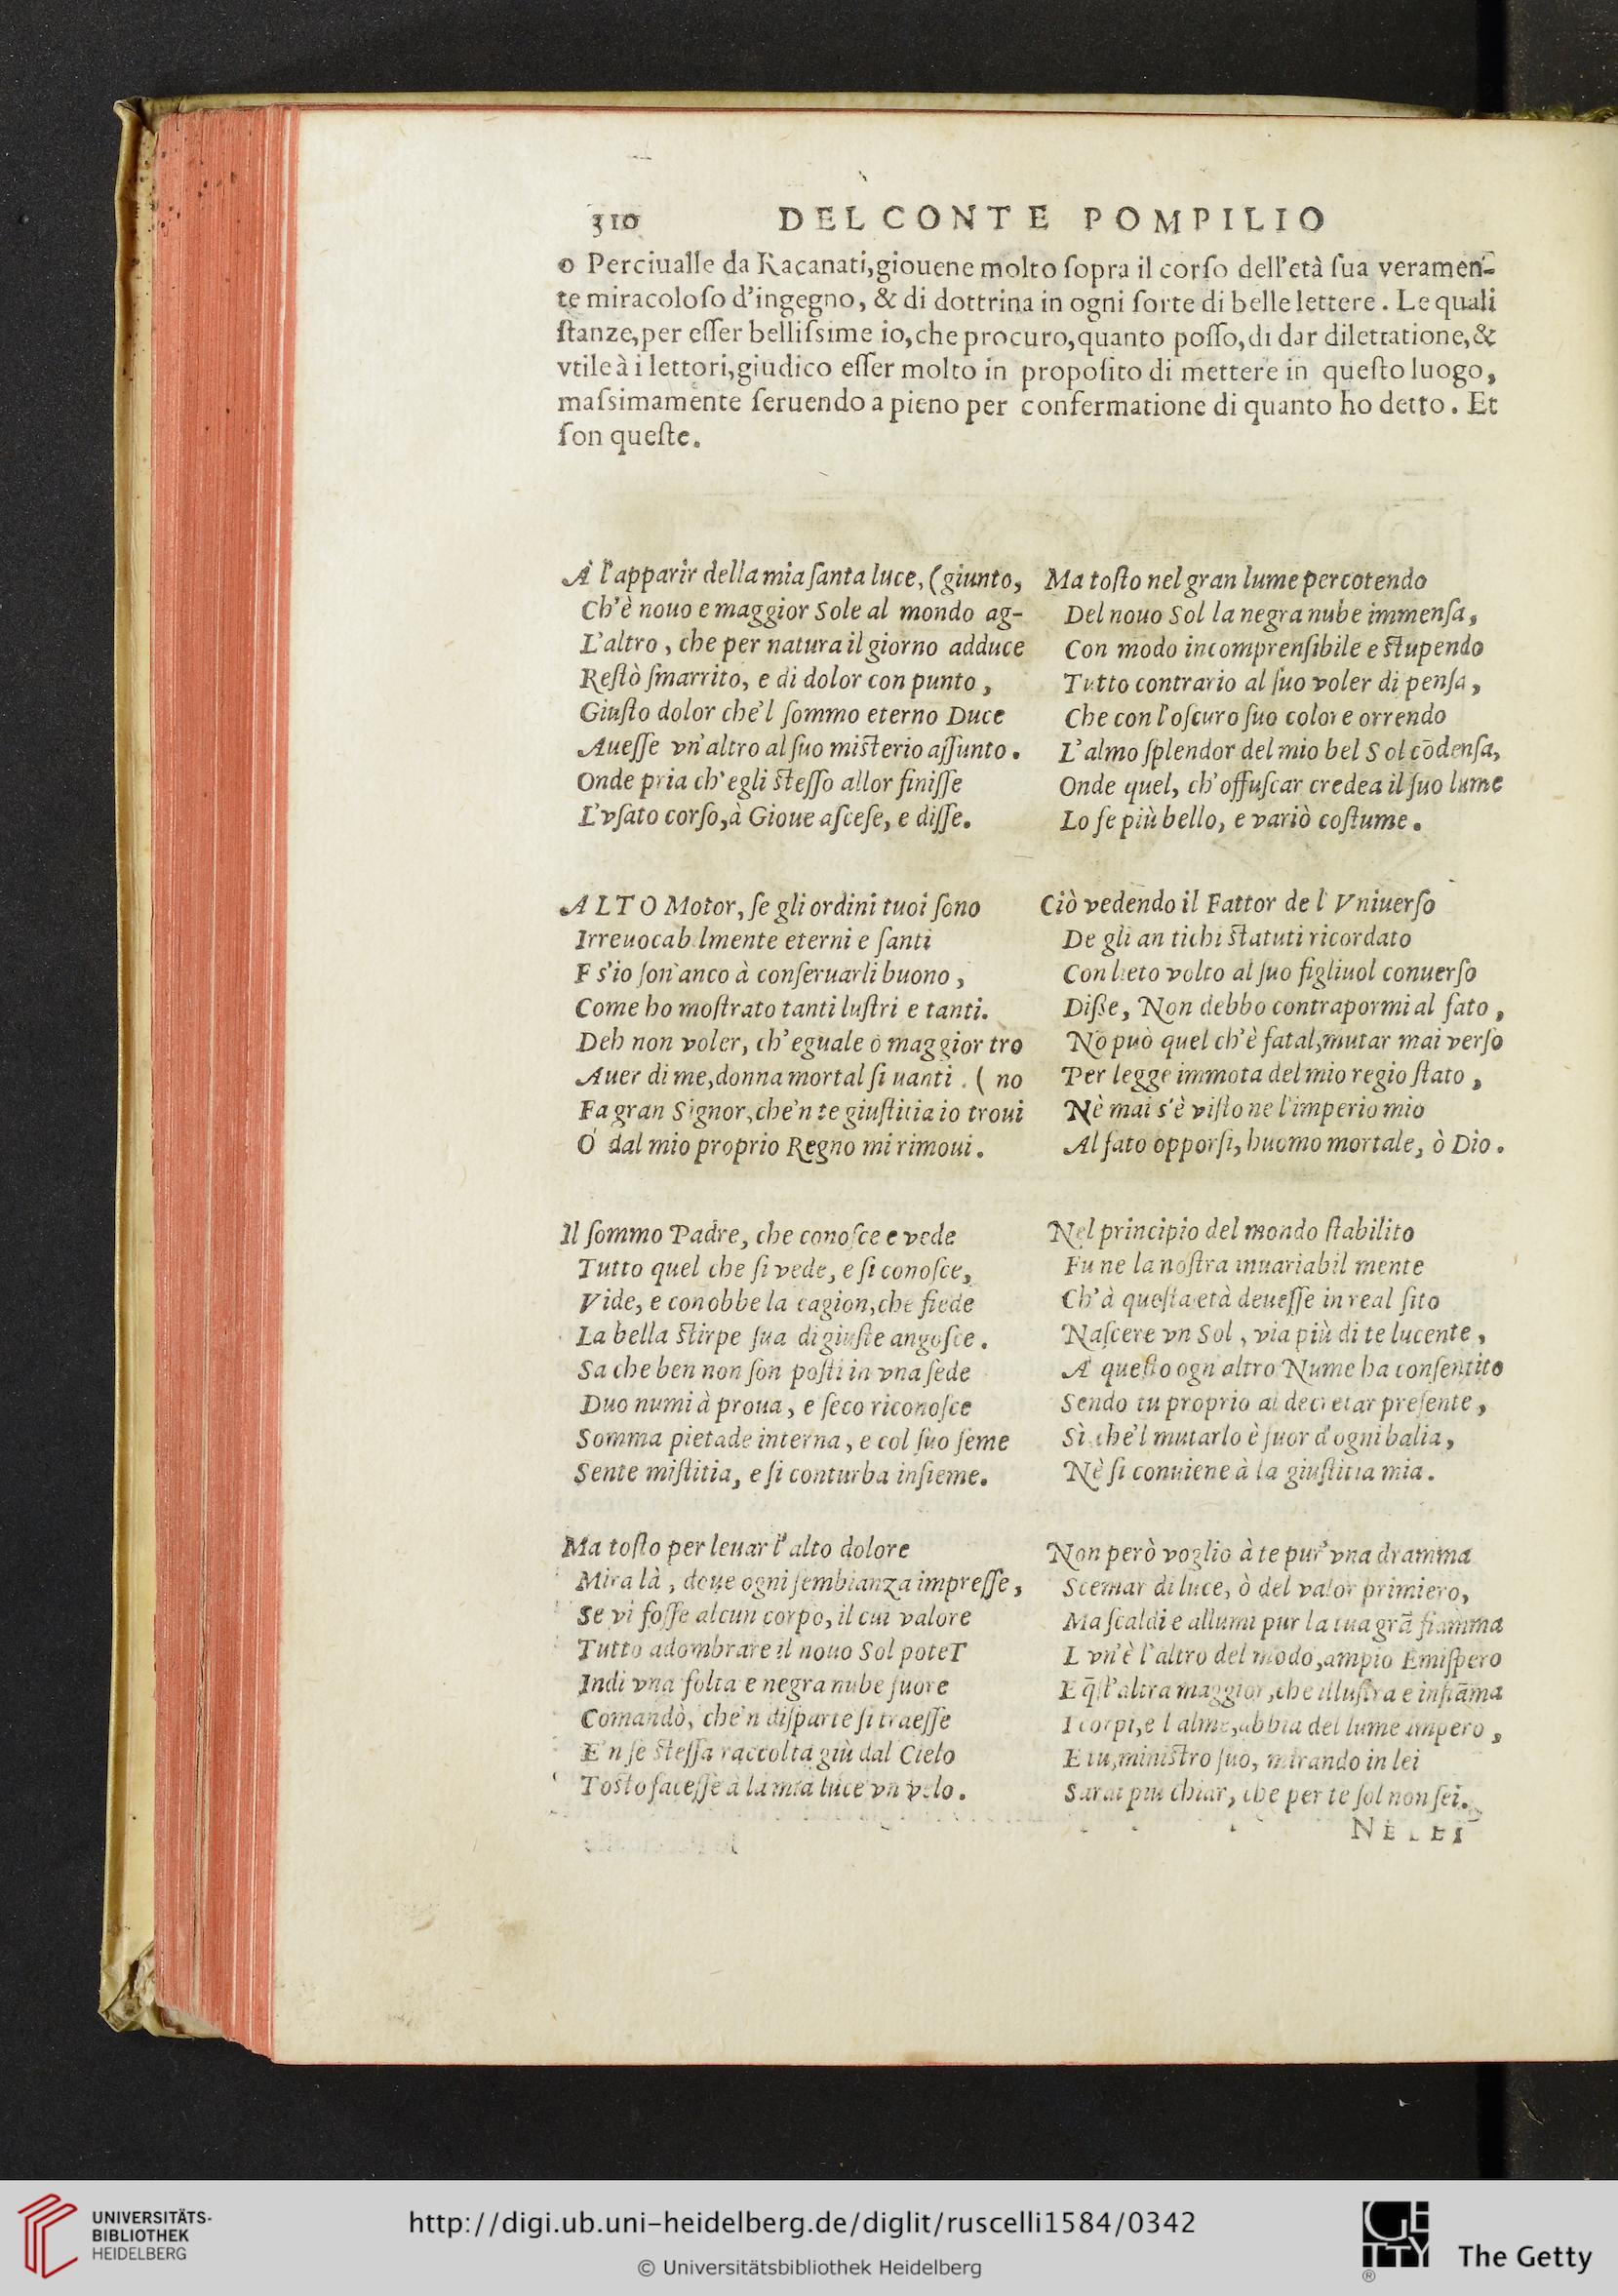 310 DEL CONTE POMPILIO
o Perciualle da Racanati,giouene molto ſopra il corſo dell'età ſua veramen-
te miracoloſo d'ingegno, & di dottrina in ogni ſorte di belle lettere. Le quali
ſtanze,per eſſer belliſsime io,che procuro,quanto poſſo,di dar dilettatione,&
vtile à i lettori,giudico eſſer molto in propoſito di mettere in queſto luogo,
maſsimamente ſeruendo a pieno per confermatione di quanto ho detto. Et
ſon queſte.
A l'apparir della mia ſanta luce, (giunto,
Ch'è nouo e maggior Sole al mondo ag-
L'altro, che per natura il giorno adduce
Reſtò ſmarrito, e di dolor con punto,
Giuſto dolor che'l ſommo eterno Duce
Aueſſe vn'altro al ſuo miſterio aſſunto.
Onde pria ch'egli ſteſſo allor finiſſe
L'vſato corſo,à Gioue aſceſe, e diſſe.
ALTO Motor, ſe gli ordini tuoi ſono
Irreuocab lmente eterni e ſanti
E s'io ſon'anco à conſeruarli buono,
Come ho moſtrato tanti luſtri e tanti.
Deh non voler, ch'eguale ò maggior tro
Auer di me,donna mortal ſi uanti. ( no
Fa gran Signor,che'n te giuſtitia io troui
O dal mio proprio Regno mi rimoui.
Il ſommo Padre, che conoſce e vede
Tutto quel che ſi vede, e ſi conoſce,
Vide, e conobbe la cagion,che fiede
La bella ſtirpe ſua di giuſte angoſce.
Sa che ben non ſon poſti in vna ſede
Duo numi à proua, e ſeco riconoſce
Somma pietade interna, e col ſuo ſeme
Sente miſtitia, e ſi conturba inſieme.
Ma toſto per leuar l'alto dolore
Mira là, doue ogni ſembianza impreſſe,
Se vi foſſe alcun corpo, il cui valore
Tutto adombrare il nouo Sol poteT
Indi vna folta e negra nube fuore
Comandò, che'n diſparte ſi traeſſe
E'n ſe ſteſſa raccolta giù dal Cielo
Toſto faceſſe a la mia luce vn velo.
Ma toſto nel gran lume percotendo
Del nouo Sol la negra nube immenſa,
Con modo incomprenſibile e ſtupendo
Tutto contrario al ſuo voler di penſa,
Che con l'oſcuro ſuo colore orrendo
L'almo ſplendor del mio bel Sol cōdenſa,
Onde quel, ch'offuſcar credea il ſuo lume
Lo fe più bello, e variò coſtume.
Ciò vedendo il Fattor de l'Vniuerſo
De gli an tichi ſtatuti ricordato
Con lieto volto al ſuo figliuol conuerſo
Diſſe, Non debbo contrapormi al fato,
No può quel ch'è fatal,mutar mai verſo
Per legge immota del mio regio ſtato,
Nè mai s'è viſto ne l'imperio mio
Al fato opporſi, huomo mortale, ò Dio.
Nel principio del mondo ſtabilito
Fu ne la noſtra inuariabil mente
Ch'à queſta età deueſſe in real ſito
Naſcere vn Sol, via più di te lucente,
A' queſto ogn altro Nume ha conſentito
Sendo tu proprio al decretar preſente,
Sì che'l mutarlo è fuor d'ogni balia,
Nè ſi conuiene à la giuſtitia mia.
Non però voglio à te pur'vna dramma
Scemar di luce, ò del valor primiero,
Ma ſcaldi e allumi pur la tua grā fiamma
L vn'è l'altro del modo,ampio Emiſpero
E q̄ſt'altra maggior,che illuſtra e infiāma
I corpi,e l alme,abbia del lume impero,
E tu,miniſtro ſuo, mirando in lei
Sarai piu chiar, che per te ſol non ſei.
UNIVERSITÄTS-
BIBLIOTHEK
HEIDELBERG
http://digi.ub.uni-heidelberg.de/diglit/ruscelli1584/0342
© Universitätsbibliothek Heidelberg
GETTY
®
The Getty